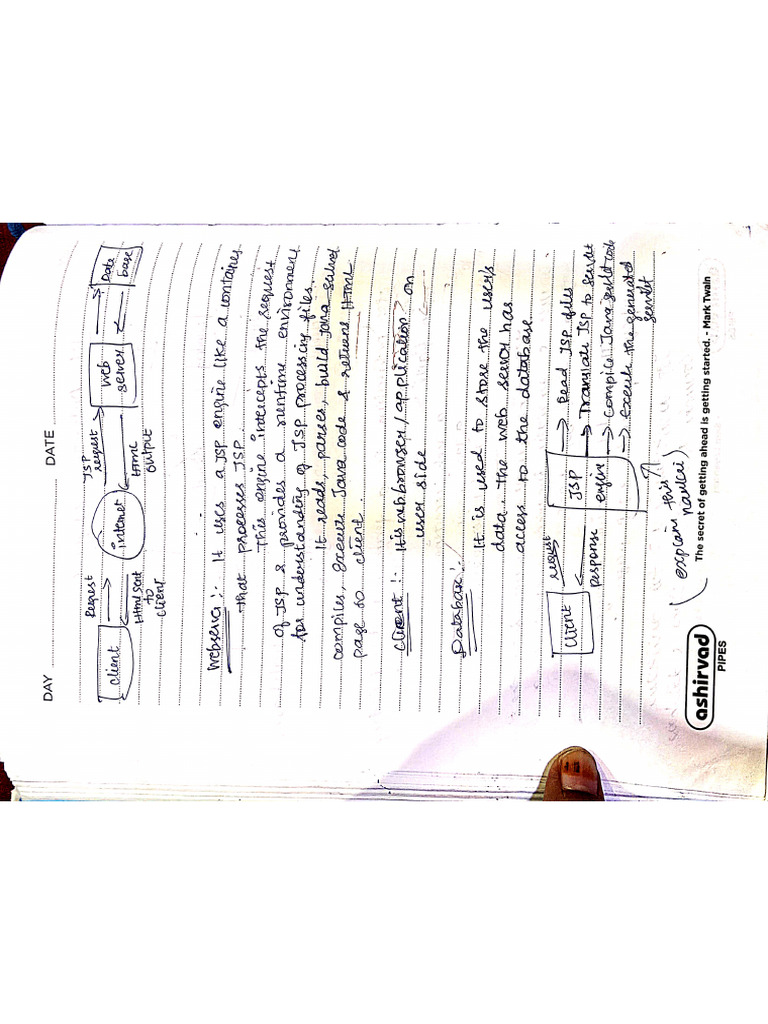 DAY DATE
Request
JSP
request
client
intenet
Web
server
Data
base
Html sent
to
client
HTML
output
Webserver :- It uses a JSP engine like a container
that processes JSP.
This engine intercepts the request
of JSP & provides a runtime environment
for understanding of JSP processing files.
It reads, parses, build java
compiles, Execute Java code & returns Html
page to client.
client :- It is web browser/application on
user side
Database :-
It is used to store the user's
data. The web server has
access to the database
Client
request
response
JSP
engine
Read JSP files
Translate JSP to Servlet
Compile Java code
execute the generated
servlet
(explain this
)
ashirvad
PIPES
The secret of getting ahead is getting started. - Mark Twain